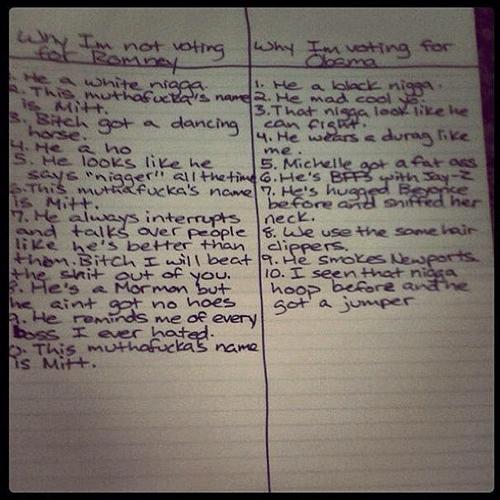 Why I'm not voting
for Romney
1. He a white nigga.
2. This muthafucka's name
is Mitt.
3. Bitch got a dancing
horse.
4. He a ho
5. He looks like he
says "nigger" all the time
6. This muthafucka's name
is Mitt.
7. He always interrupts
and talks over people
like he's better than
them. Bitch I will beat
the shit out of you.
8. He's a Mormon but
he aint got no hoes
9. He reminds me of every
boss I ever hated.
0. This muthafucka's name
is Mitt.
Why I'm voting for
Obama
1. He a black nigga.
2. He mad cool yo.
3. That nigga look like he
can fight.
4. He wears a durag like
me.
5. Michelle got a fat ass
6. He's BFFS with Jay-Z
7. He's hugged Beyonce
before and sniffed her
neck.
8. We use the same hair
clippers.
9. He smokes Newports.
10. I seen that nigga
hoop before and he
got a jumper